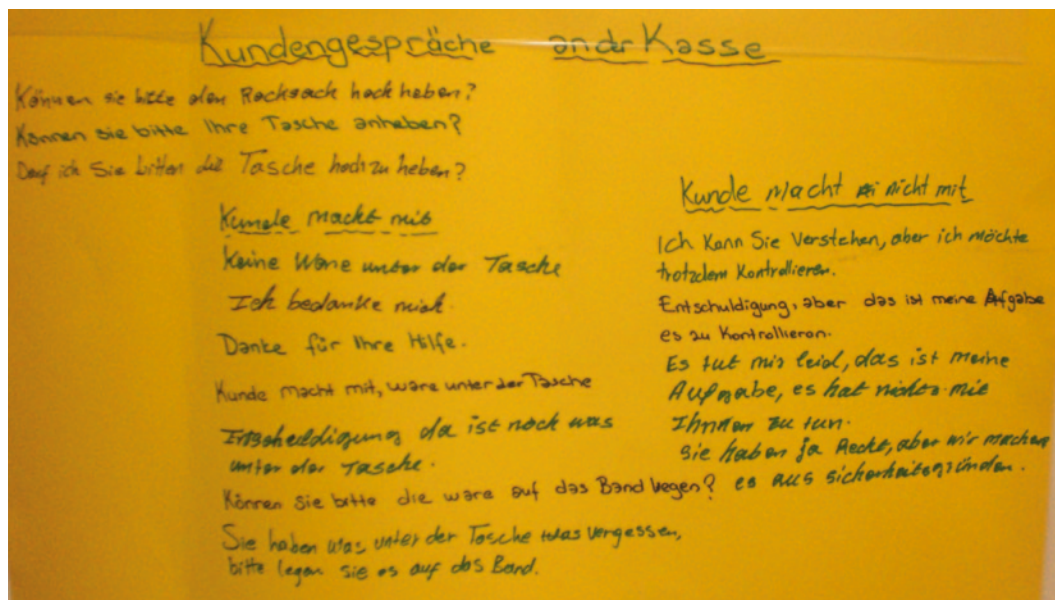 Kundengespräche an der Kasse
Können sie bitte den Rucksack hoch heben?
Können sie bitte Ihre Tasche anheben?
Darf ich Sie bitten die Tasche hoch zu heben?
Kunde macht mit
Keine Ware unter der Tasche
Ich bedanke mich.
Danke für Ihre Hilfe.
Kunde macht mit, ware unter der Tasche
Entschuldigung da ist noch was
unter der Tasche.
Können Sie bitte die ware auf das Band legen?
Sie haben was unter der Tasche vergessen,
bitte legen sie es auf das Band.
Kunde Macht nicht mit
Ich kann Sie Verstehen, aber ich möchte
trotzdem Kontrollieren.
Entschuldigung, aber das ist meine Afgabe
es zu Kontrollieren.
Es tut mir leid, das ist meine
Aufgabe, es hat nichts mit
Ihnnen zu tun.
Sie haben ja Recht, aber wir machen
es aus sicherheitsgründen.